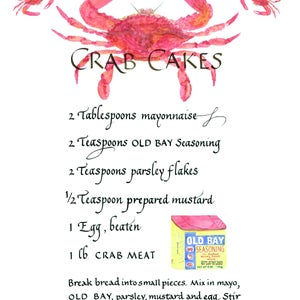 CRAB CAKES
2 Tablespoons mayonnaise
2 Teaspoons OLD BAY Seasoning
2 Teaspoons parsley flakes
1/2 Teaspoon prepared mustard
1 Egg, beaten
OLD BAY
SEASONING
1 lb CRAB MEAT
Break bread into small pieces. Mix in mayo,
OLD BAY, parsley, mustard and egg. Stir